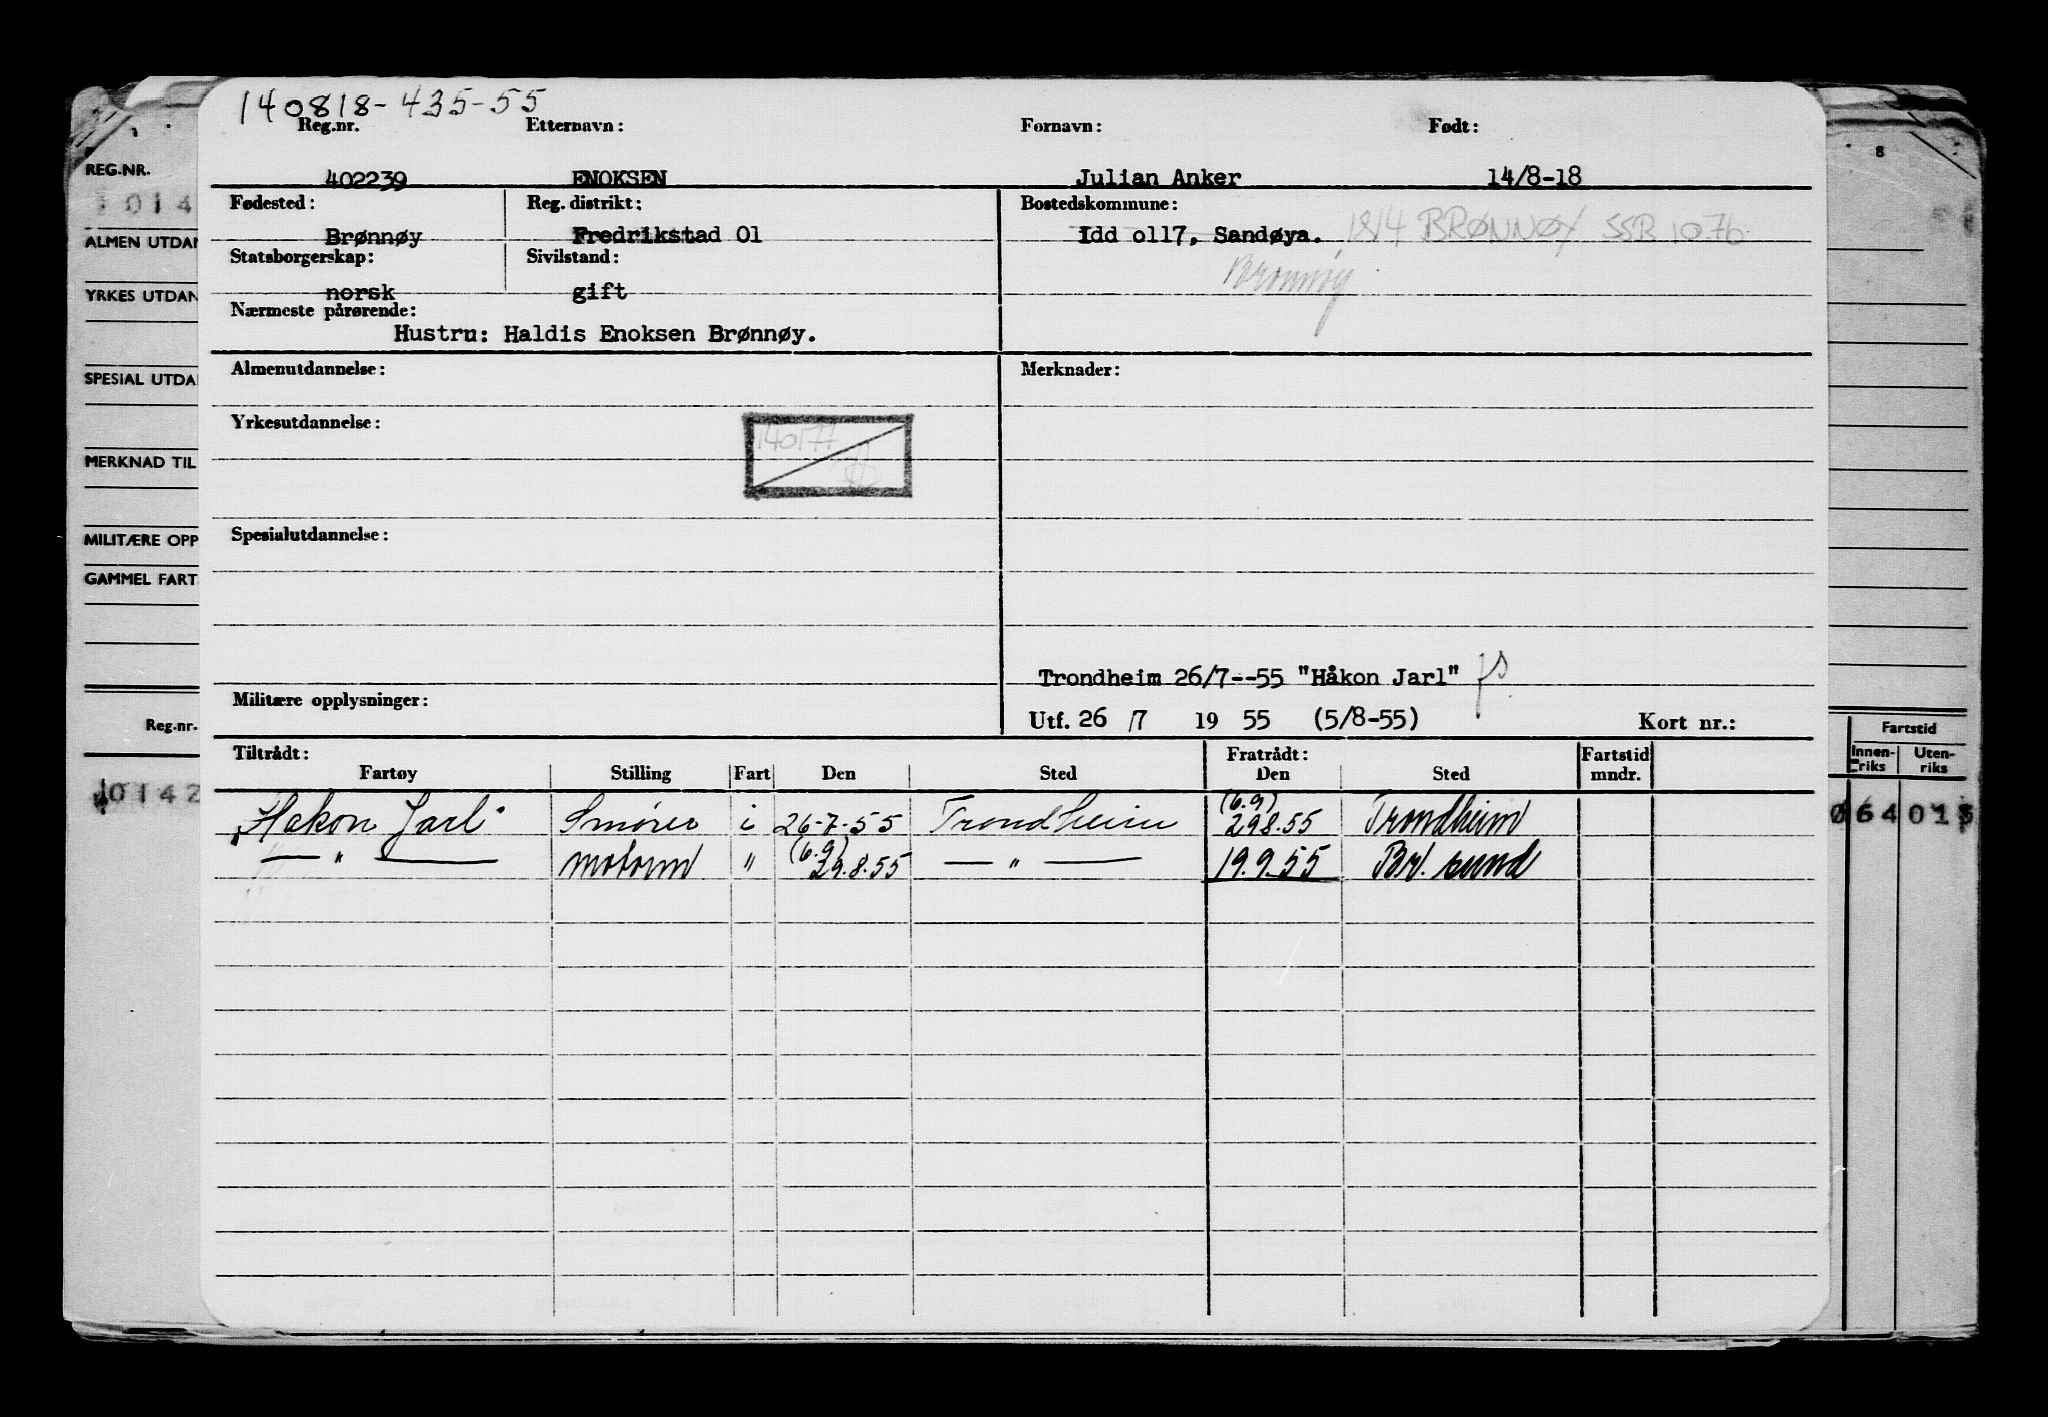 140818-435-55
Reg.nr. Etternavn: Fornavn: Født:
402239 ENOKSEN Julian Anker 14/8-18
Fødested: Reg. distrikt: Bostedskommune:
Brønnøy Fredrikstad 01 Idd 0117, Sandøya. 1814 BRØNNØY SSB 10.76
Statsborgerskap: Sivilstand: Brønnøy
norsk gift
Nærmeste pårørende:
Hustru: Haldis Enoksen Brønnøy.
Almenutdannelse: Merknader:
Yrkesutdannelse:
140177
Spesialutdannelse:
Trondheim 26/7--55 "Håkon Jarl"
Militære opplysninger:
Utf. 26 /7 19 55 (5/8-55) Kort nr.:
Tiltrådt: Fratrådt: Fartstid
Fartøy Stilling Fart Den Sted Den Sted mndr.
"Håkon Jarl" Smører i 26-7-55 Trondheim (6.9) 29.8.55 Trondheim
— " — motorm " (6.9) 29.8.55 — " — 19.9.55 Br. sund
REG.NR. 8
1014
ALMEN UTDAN
YRKES UTDAN
SPESIAL UTDA
MERKNAD TIL
MILITÆRE OPP
GAMMEL FART
Reg.nr. Fartstid
Innen-riks Uten-riks
10142 064 013